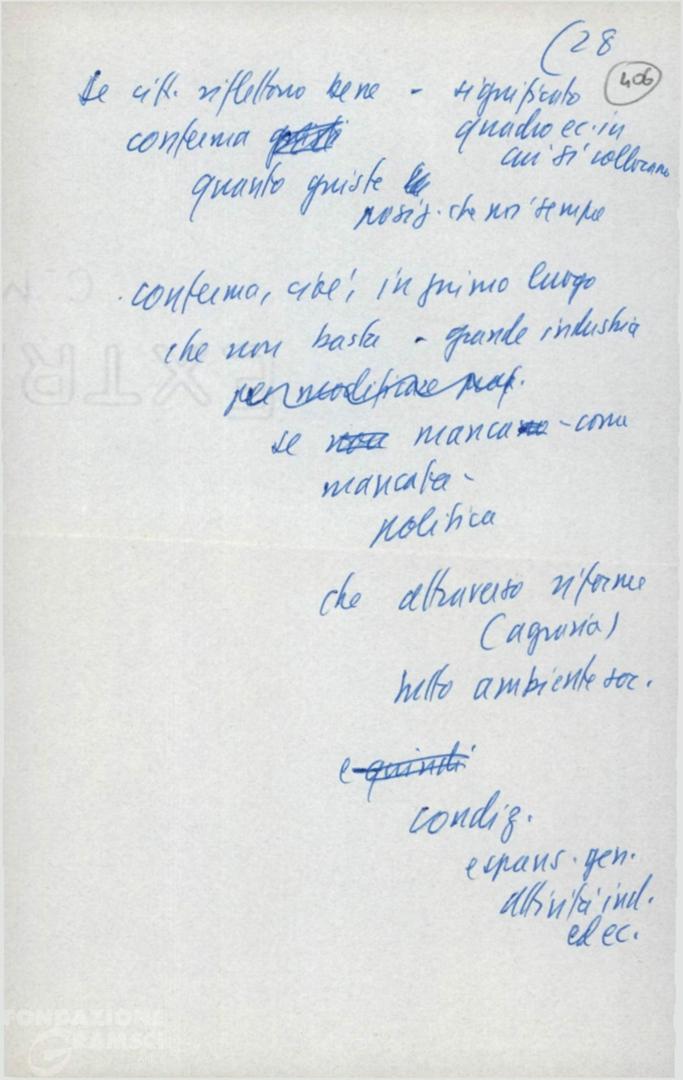 (28
406
Se cift. riflettono bene - significato
conferma quadro ec. in
cui si collocano
quanto giuste
posiz. che noi sempre
conferma, cioè, in primo luogo
che non basta - grande industria
per modificare prof.
se non mancano - come
mancata -
politica
che attraverso riforme
(agraria)
tutto ambiente soc.
e quindi
condiz.
espans. gen.
attività ind.
ed ec.
EXTR
FONDAZIONE
GRAMSCI